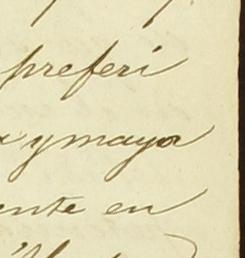 preferi
a y mayo
ente en